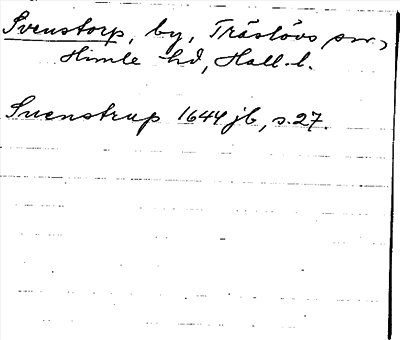 Svenstorp, by, Träslövs sn,
Himle hd, Hall. l.
Svenstrup 1644 jb, s. 27.